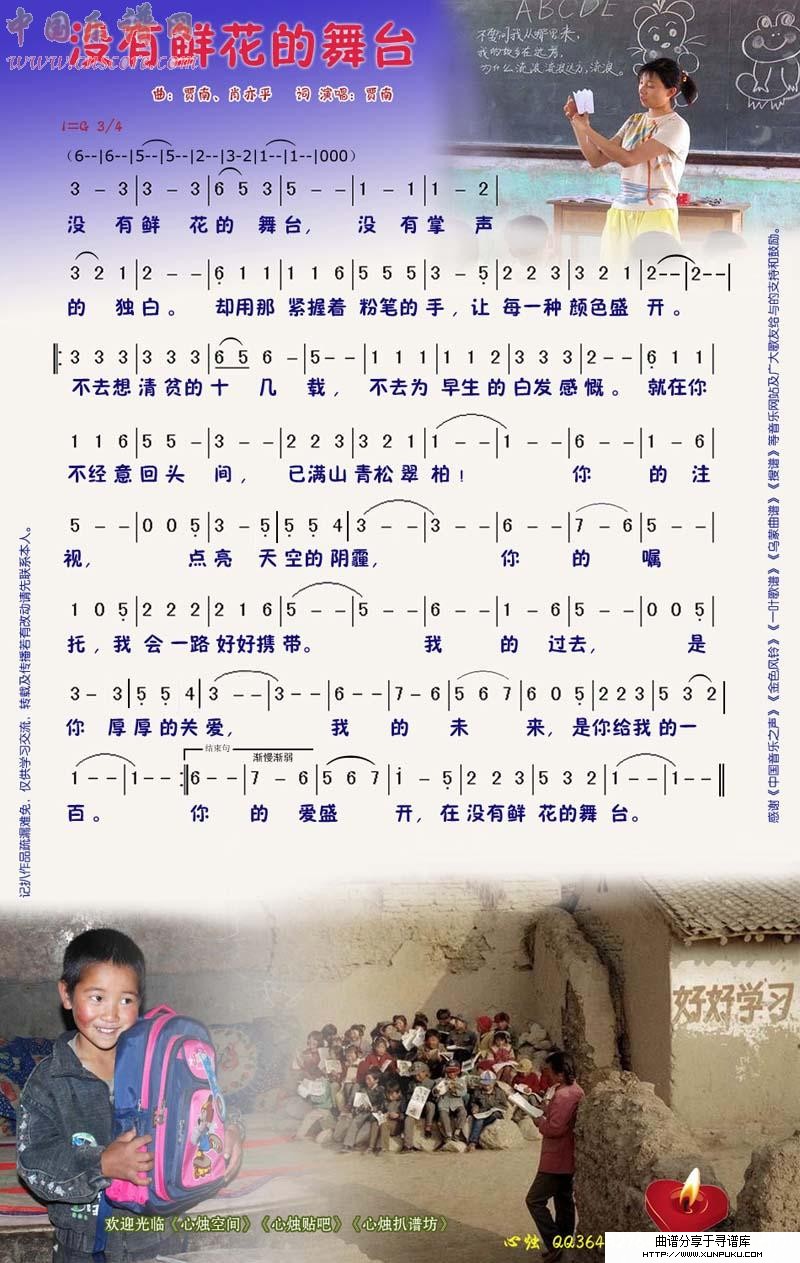 中国乐谱网
www.cnscore.com
没有鲜花的舞台
曲：贾南、肖亦乎 词 演唱：贾南
ABCDE
不要问我从哪里来，
我的故乡在远方，
为什么流浪 流浪远方，流浪。
1=G 3/4
（6--|6--|5--|5--|2--|3-2|1--|1--|000）
3 - 3|3 - 3|6 5 3|5 - -|1 - 1|1 - 2|
没 有 鲜 花 的 舞 台， 没 有 掌 声
3 2 1|2 - -|6̣ 1 1|1 1 6|5 5 5|3 - 5̣|2 2 3|3 2 1|2--|2--|
的 独 白。 却用那 紧握着 粉笔的 手，让 每一种 颜色盛 开。
‖: 3 3 3|3 3 3|6 5 6 -|5--|1 1 1|1 1 2|3 3 3|2--|6̣ 1 1|
不去想 清贫的 十 几 载， 不去为 早生的 白发感 慨。 就在你
1 1 6|5 5 -|3 - -|2 2 3|3 2 1|1 - -|1 - -|6 - -|1 - 6|
不经意 回头 间， 已满山 青松翠 柏！ 你 的 注
5 - -|0 0 5̣|3 - 5̣|5̣ 5̣ 4̣|3 - -|3 - -|6 - -|7 - 6|5 - -|
视， 点 亮 天 空的阴 霾， 你 的 嘱
1 0 5̣|2 2 2|2 1 6|5 - -|5 - -|6 - -|1 - 6|5 - -|0 0 5̣|
托，我 会一路 好好携 带。 我 的 过去， 是
3- 3|5̣ 5̣ 4̣|3 - -|3--|6--|7-6|5 6 7|6 0 5̣|2 2 3|5 3 2|
你 厚 厚的关 爱， 我 的 未 来，是 你给我 的一
结束句
渐慢渐弱
1--|1--:‖6--|7 - 6|5 6 7|i - 5̣|2 2 3|5 3 2|1--|1--‖
百。 你 的 爱盛 开，在 没有鲜 花的舞 台。
记扒作品疏漏难免，仅供学习交流，转载及传播若有改动请先联系本人。
感谢《中国音乐之声》《金色风铃》《一叶歌谱》《乌蒙曲谱》《搜谱》等音乐网站及广大歌友给与的支持和鼓励。
好好学习
欢迎光临《心烛空间》《心烛贴吧》《心烛扒谱坊》
心烛 QQ364
曲谱分享于寻谱库
HTTP://WWW.XUNPUKU.COM